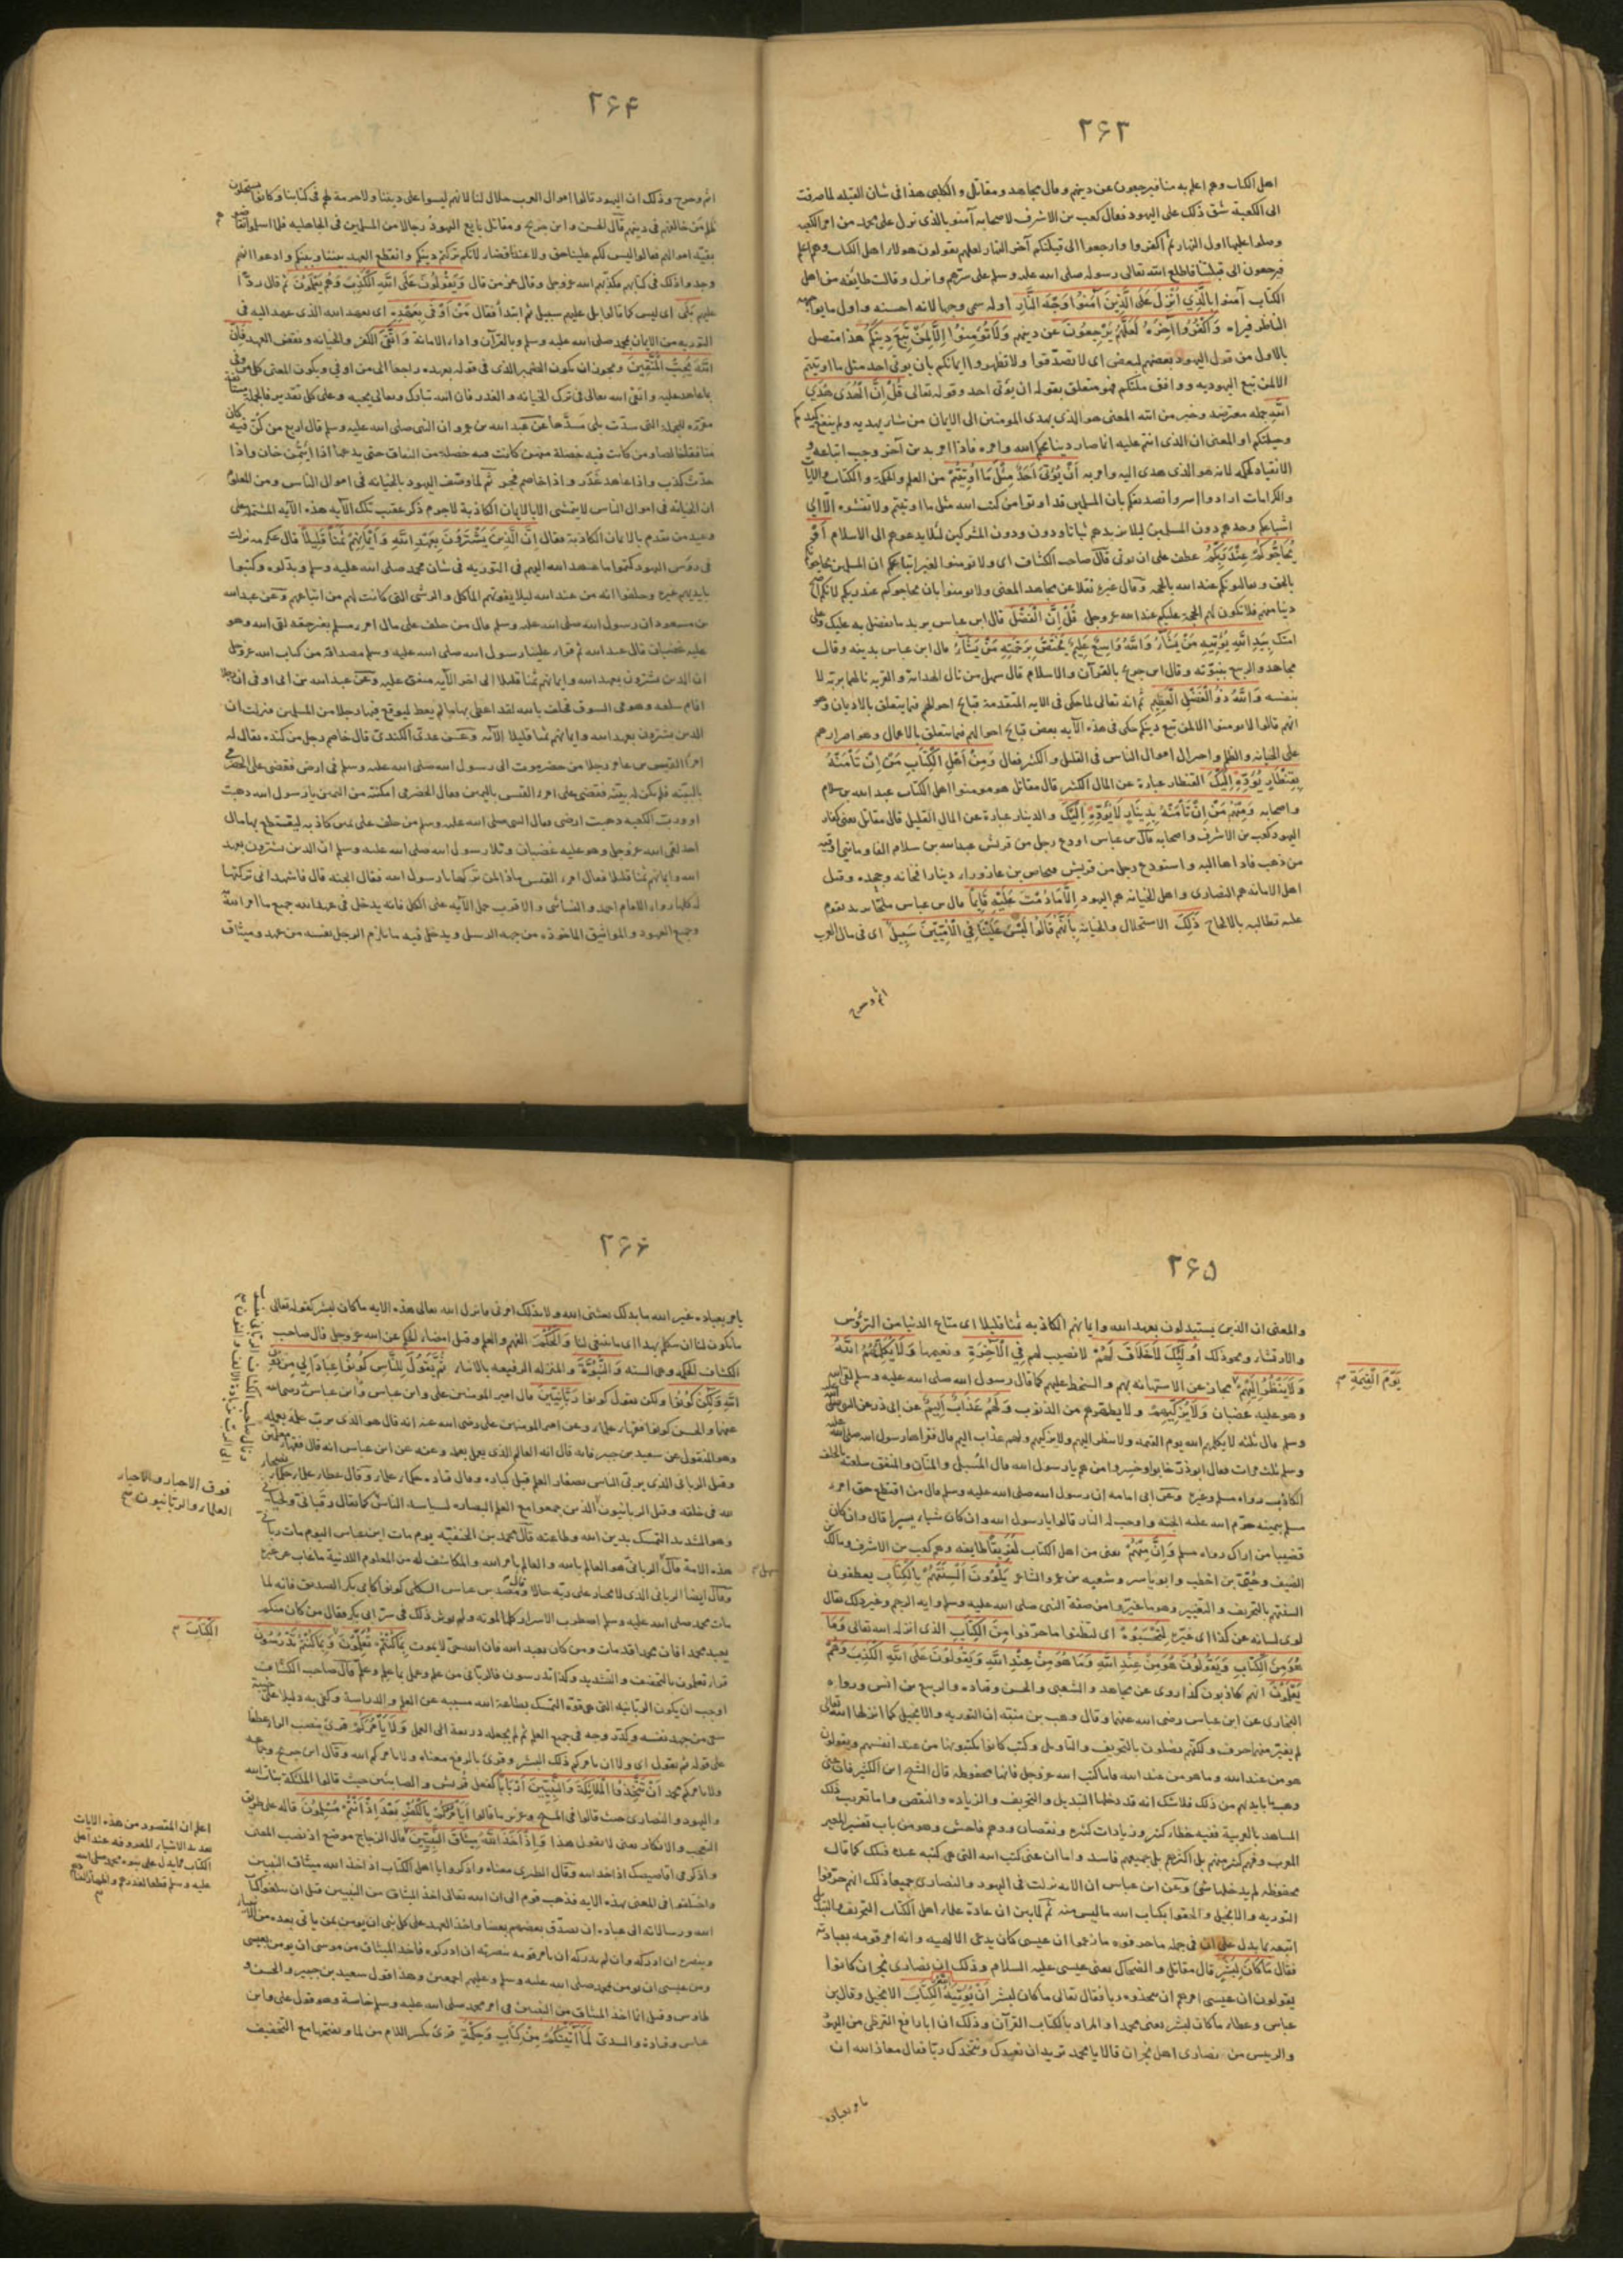 ٢۶٣
اهل الكتاب وهم اعلم به منا فيرجعون عن دينهم وقال مجاهد ومقاتل والكلبي هذا في شان القبلة لما صرفت
الى الكعبة شق ذلك على اليهود فقال كعب بن الاشرف لاصحابه آمنوا بالذي نزل على محمد من امر الكعبة
وصلوا عليها اول النهار ثم اكفروا وارجعوا الى قبلتكم آخر النهار لعلهم يقولون هولاء اهل الكتاب وهم اعلم
فيرجعون الى قبلتنا فاطلع الله تعالى رسوله صلى الله عليه وسلم على سرهم وانزل وقالت طائفة من اهل
الكتاب آمنوا بالَّذِي اُنْزِلَ عَلَى الَّذِينَ آمَنُوا وَجْهَ النَّهَارِ اوله سمي وجها لانه احسنه واول ما يواجه
الناظر فيراه وَاكْفُرُوا آخِرَهُ لَعَلَّهُمْ يَرْجِعُونَ عن دينهم وَلَا تُؤْمِنُوا إِلَّا لِمَنْ تَبِعَ دِينَكُمْ هذا متصل
بالاول من قول اليهود بعضهم لبعض اى لا تصدقوا ولا تظهروا ايمانكم بان يوتى احد مثل ما اوتيتم
الا لمن تبع اليهودية ووافق ملتكم فهو متعلق بقوله ان يؤتى احد وقوله تعالى قُلْ إِنَّ الْهُدَى هُدَى
اللهِ جملة معترضة وخبر من الله المعنى هو الذي يهدي المومنين الى الايمان من شاء يهديه ولم ينفع كيدكم
وحيلتكم او المعنى ان الذي انتم عليه انما صار دينا بحكم الله وامره فاذا امر بدين آخر وجب اتباعه و
الانقياد لحكمه لانه هو الذي هدى اليه وامر به أَنْ يُؤْتَى أَحَدٌ مِثْلَ مَا أُوتِيتُمْ من العلم والحكمة والكتاب والآيات
والكرامات ارادوا اسروا تصديقكم بان المسلمين قد اوتوا من كتب الله مثل ما اوتيتم ولا تفشوه الا الى
اشياعكم وحدهم دون المسلمين ليلا يزيدهم ثباتا ودون المشركين لئلا يدعوهم الى الاسلام أَوْ
يُحَاجُّوكُمْ عِنْدَ رَبِّكُمْ عطف على ان يوتى قال صاحب الكشاف اى ولا تومنوا لغير اتباعكم ان المسلمين يحاجوكم
بالحق ويغالبونكم عند الله بالحجة وقال غيره نقلا عن مجاهد المعنى ولا تومنوا بان يحاجوكم عند ربكم لانكم اصح
دينا منهم فلا تكون لهم الحجة عليكم عند الله عز وجل قُلْ إِنَّ الْفَضْلَ قال ابن عباس يريد ما تفضل به عليك وعلى
امتك بِيَدِ اللهِ يُؤْتِيهِ مَنْ يَشَاءُ وَاللهُ وَاسِعٌ عَلِيمٌ يَخْتَصُّ بِرَحْمَتِهِ مَنْ يَشَاءُ قال ابن عباس بدينه وقال
بنفسه وَاللهُ ذُو الْفَضْلِ الْعَظِيمِ ثم انه تعالى لما حكى في الآية المتقدمة قبائح احوالهم فيما يتعلق بالاديان وهو
انهم قالوا لا تومنوا الا لمن تبع دينكم حكى في هذه الآية بعض قبائح احوالهم فيما يتعلق بالاعمال وهو اصرارهم
على الخيانة والظلم واموال الناس في القليل والكثير فقال وَمِنْ أَهْلِ الْكِتَابِ مَنْ إِنْ تَأْمَنْهُ
بِقِنْطَارٍ يُؤَدِّهِ إِلَيْكَ القنطار عبارة عن المال الكثير قال مقاتل هو مومنوا اهل الكتاب عبد الله بن سلام
واصحابه وَمِنْهُمْ مَنْ إِنْ تَأْمَنْهُ بِدِينَارٍ لَا يُؤَدِّهِ إِلَيْكَ والدينار عبارة عن المال القليل قال مقاتل يعني كفار
اليهود كعب بن الاشرف واصحابه قال بن عباس اودع رجل من قريش عبدالله بن سلام الفا ومائتي اوقية
من ذهب فاداها اليه واستودع رجل من قريش فنحاص بن عازوراء دينارا فخانه وجحده وقيل
اهل الامانة هم النصارى واهل الخيانة هم اليهود إِلَّا مَا دُمْتَ عَلَيْهِ قَائِمًا قال بن عباس ملحا يريد يقوم
عليه تطالبه بالالحاح ذَلِكَ الاستحلال والخيانة بِأَنَّهُمْ قَالُوا لَيْسَ عَلَيْنَا فِي الْأُمِّيِّينَ سَبِيلٌ اى في مال العرب
اثم وحرج
٢۶۴
اثم وحرج وذلك ان اليهود قالوا اموال العرب حلال لنا لانهم ليسوا على ديننا ولا حرمة لهم في كتابنا وكانوا يستحلون
ظلم من خالفهم في دينهم قال الحسن وابن جريج ومقاتل بايع اليهود رجالا من المسلمين في الجاهلية فلما اسلموا تقاضوهم
بقية اموالهم فقالوا ليس لكم علينا حق ولا عندنا قضاء لانكم تركتم دينكم وانقطع العهد بيننا وبينكم وادعوا انهم
وجدوا ذلك في كتابهم فكذبهم الله عز وجل وقال عز من قال وَيَقُولُونَ عَلَى اللهِ الْكَذِبَ وَهُمْ يَعْلَمُونَ ثم قال ردا
عليهم بَلَى اى ليس كما قالوا بل عليهم سبيل ثم ابتدأ فقال مَنْ أَوْفَى بِعَهْدِهِ اى بعهد الله الذي عهد اليه في
التورية من الايمان بمحمد صلى الله عليه وسلم وبالقرآن واداء الامانة وَاتَّقَى الكفر والخيانة ونقض العهد فَإِنَّ
اللهَ يُحِبُّ الْمُتَّقِينَ ويجوز ان يكون الضمير الذي في قوله بعهده راجعا الى من اوفى ويكون المعنى كل من وفى
بما عاهد عليه واتقى الله تعالى في ترك الخيانة والغدر فان الله تبارك وتعالى يحبه وعلى كل تقدير فالجملة مستأنفة
مقررة للجملة التى سدت بلى مسدها عن عبد الله بن عمرو ان النبى صلى الله عليه وسلم قال اربع من كن فيه كان
منافقا خالصا ومن كانت فيه خصلة منهن كانت فيه خصلة من النفاق حتى يدعها اذا ائتمن خان واذا
حدث كذب واذا عاهد غدر واذا خاصم فجر ثم لما وصف اليهود بالخيانة في اموال الناس ومن المعلوم
ان الخيانة في اموال الناس لا يتمشى الا بالايمان الكاذبة لا جرم ذكر عقيب تلك الآية هذه الآية المشتملة على
وعيد من تقدم بالايمان الكاذبة فقال إِنَّ الَّذِينَ يَشْتَرُونَ بِعَهْدِ اللهِ وَأَيْمَانِهِمْ ثَمَنًا قَلِيلًا قال عكرمة نزلت
في رؤس اليهود كتموا ما عهد الله اليهم في التورية في شان محمد صلى الله عليه وسلم وبدلوه وكتبوا
بايديهم غيره وحلفوا انه من عند الله ليلا يفوتهم المآكل والرشى التى كانت لهم من اتباعهم وعن عبد الله
بن مسعود ان رسول الله صلى الله عليه وسلم قال من حلف على مال امرء مسلم بغير حقه لقى الله وهو
عليه غضبان قال عبد الله ثم قرأ علينا رسول الله صلى الله عليه وسلم مصداقه من كتاب الله عز وجل
ان الذين يشترون بعهد الله وايمانهم ثمنا قليلا الى اخر الآية متفق عليه وعن عبد الله بن ابى اوفى ان رجلا
اقام سلعة وهو في السوق فحلف بالله لقد اعطى بها ما لم يعط ليوقع فيها رجلا من المسلمين فنزلت ان
الذين يشترون بعهد الله وايمانهم ثمنا قليلا الآية وعن عدى الكندى قال خاصم رجل من كندة يقال له
امرء القيس بن عابس رجلا من حضرموت الى رسول الله صلى الله عليه وسلم في ارض فقضى على الحضرمى
بالبينة فلم يكن له بينة فقضى على امرء القيس باليمين فقال الحضرمى امكنته من اليمين يا رسول الله ذهبت
او ورب الكعبة ذهبت ارضى فقال النبى صلى الله عليه وسلم من حلف على يمين كاذبة ليقتطع بها مال
احد لقى الله عز وجل وهو عليه غضبان وتلا رسول الله صلى الله عليه وسلم ان الذين يشترون بعهد
الله وايمانهم ثمنا قليلا فقال امرء القيس ماذا لمن تركها يا رسول الله فقال الجنة قال فاشهد انى تركتها
له كلها رواه الامام احمد والنسائى والاقرب حمل الآية على الكل فانه يدخل في عهد الله جميع ما امر الله
وجميع العهود والمواثيق الماخوذة من جهة الرسل ويدخل فيه ما يلزم الرجل نفسه من عهد وميثاق
٢۶۵
والمعنى ان الذين يستبدلون بعهد الله وايمانهم الكاذبة ثمنا قليلا اى متاع الدنيا من الترؤس
والارتشاء ونحو ذلك أُولَئِكَ لَا خَلَاقَ لَهُمْ لا نصيب لهم فِي الْآخِرَةِ ونعيمها وَلَا يُكَلِّمُهُمُ اللهُ
وَلَا يَنْظُرُ إِلَيْهِمْ مجاز عن الاستهانة بهم والسخط عليهم كما قال رسول الله صلى الله عليه وسلم لقى الله
يَوْمَ الْقِيمَةِ
وهو عليه غضبان وَلَا يُزَكِّيهِمْ ولا يطهرهم من الذنوب وَلَهُمْ عَذَابٌ أَلِيمٌ عن ابى ذر عن النبى صلى الله عليه
وسلم قال ثلثة لا يكلمهم الله يوم القيمة ولا ينظر اليهم ولا يزكيهم ولهم عذاب اليم قال فقراها رسول الله صلى الله عليه
وسلم ثلث مرات فقال ابوذر خابوا وخسروا من هم يا رسول الله قال المسبل والمنان والمنفق سلعته بالحلف
الكاذب رواه مسلم وغيره وعن ابى امامة ان رسول الله صلى الله عليه وسلم قال من اقتطع حق امرء
مسلم بيمينه حرم الله عليه الجنة واوجب له النار قالوا يا رسول الله وان كان شيئا يسيرا قال وان كان
قضيبا من اراك رواه مسلم وَإِنَّ مِنْهُمْ يعنى من اهل الكتاب لَفَرِيقًا طايفة وهم كعب بن الاشرف ومالك بن
الضيف وحيى بن اخطب وابو ياسر وشعبة بن عمرو الشاعر يَلْوُونَ أَلْسِنَتَهُمْ بِالْكِتَابِ يعطفون
السنتهم بالتحريف والتغيير وهو ما غيروا من صفة النبى صلى الله عليه وسلم واية الرجم وغير ذلك يقال
لوى لسانه عن كذا اى غيره لِتَحْسَبُوهُ اى لتظنوا ما حرفوا مِنَ الْكِتَابِ الذى انزله الله تعالى وَمَا
هُوَ مِنَ الْكِتَابِ وَيَقُولُونَ هُوَ مِنْ عِنْدِ اللهِ وَمَا هُوَ مِنْ عِنْدِ اللهِ وَيَقُولُونَ عَلَى اللهِ الْكَذِبَ وَهُمْ
يَعْلَمُونَ انهم كاذبون كذا روى عن مجاهد والشعبى والحسن وقتادة والربيع بن انس ورواه
البخارى عن ابن عباس رضى الله عنهما وقال وهب بن منبه ان التورية والانجيل كما انزلها الله تعالى
لم يغير منها حرف ولكنهم يضلون بالتحريف والتاويل وكتب كانوا يكتبونها من عند انفسهم ويقولون
هو من عند الله وما هو من عند الله فاما كتب الله عز وجل فانها محفوظة قال الشيخ ابن الكثير فان عنى
وهب ما بايديهم من ذلك فلا شك انه قد دخلها التبديل والتحريف والزيادة والنقص واما تعريب ذلك
المشاهد بالعربية ففيه خطاء كثير وزيادات كثيرة ونقصان ووهم فاحش وهو من باب تفسير المعبر
المعرب وفهم كثير منهم بل اكثرهم بل جميعهم فاسد واما ان عنى كتب الله التى هى كتبه عنده فتلك كما قال
محفوظة لم يدخلها شئ وعن ابن عباس ان الآية نزلت في اليهود والنصارى جميعا وذلك انهم حرفوا
التورية والانجيل والحقوا بكتاب الله ما ليس منه ثم لما بين ان عادة علماء اهل الكتاب التحريف والتبديل
اتبعه بما يدل على ان في جملة ما حرفوه ما زعموا ان عيسى كان يدعى الالهية وانه امر قومه بعبادته
فقال مَا كَانَ لِبَشَرٍ قال مقاتل والضحاك يعنى عيسى عليه السلام وذلك ان نصارى نجران كانوا
يقولون ان عيسى امرهم ان يتخذوه ربا فقال تعالى ما كان لبشر أَنْ يُؤْتِيَهُ اللهُ الْكِتَابَ الانجيل وقال بن
عباس وعطاء ما كان لبشر يعنى محمدا والمراد بالكتاب القرآن وذلك ان ابا رافع القرظى من اليهود
والرييس من نصارى اهل نجران قالا يا محمد تريد ان نعبدك ونتخذك ربا فقال معاذ الله ان
يامر بعبادة
٢۶۶
يامر بعبادة غير الله ما بذلك بعثنى الله ولا بذلك امرنى فانزل الله تعالى هذه الآية ما كان لبشر كقوله تعالى
ما يكون لنا ان نتكلم بهذا اى ما ينبغى لنا وَالْحُكْمَ الفهم والعلم وقيل امضاء الحكم عن الله عز وجل قال صاحب
الكشاف الحكمة وهى السنة وَالنُّبُوَّةَ والمنزلة الرفيعة بالانباء ثُمَّ يَقُولَ لِلنَّاسِ كُونُوا عِبَادًا لِي مِنْ دُونِ
اللهِ وَلَكِنْ كُونُوا ولكن يقول كونوا رَبَّانِيِّينَ قال امير المومنين على وابن عباس
عنهما والحسن كونوا فقهاء علماء وعن امير المومنين على رضى الله عنه انه قال هو الذى يرب علمه بعمله
وهو المنقول عن سعيد بن جبير فانه قال انه العالم الذى يعمل بعلمه وعنه عن ابن عباس انه قال فقهاء معلمين
وقيل الربانى الذى يربى الناس بصغار العلم قبل كباره وقال قتادة حكماء علماء وقال عطاء علماء حكماء نصحاء
لله في خلقه وقيل الربانيون الذين جمعوا مع العلم البصارة لسياسة الناس كما يقال رقبانى ولحيانى
فوق الاحبار والاحبار
العلماء والربانيون
وهو الشديد التمسك بدين الله وطاعته قال محمد بن الحنفية يوم مات ابن عباس اليوم مات ربانى
هذه الامة قال الربانى هو العالم بالله والعالم بامر الله والمكاشف له من العلوم اللدنية ما غاب عن غيره
وقال ايضا الربانى الذى لا يختار على ربه حالا
مات محمد صلى الله عليه وسلم اضطرب الاسرار كلها لموته ولم يوثر ذلك في سر ابى بكر فقال من كان منكم
يعبد محمدا فان محمدا قد مات ومن كان يعبد الله فان الله حى لا يموت بِمَا كُنْتُمْ تُعَلِّمُونَ وَبِمَا كُنْتُمْ تَدْرُسُونَ
الْكِتَابَ
قرئ تعلمون بالتخفيف والتشديد وكذا تدرسون فالربانى من علم وعمل بما علم وعلم قال صاحب الكشاف
اوجب ان يكون الربانية التى هى قوة التمسك بطاعة الله مسببة عن العلم والدراسة وكفى به دليلا على خيبة
سعى من جهد نفسه وكد روحه في جمع العلم ثم لم يجعله ذريعة الى العمل وَلَا يَأْمُرَكُمْ قرئ بنصب الراء عطفا
على قوله ثم يقول اى ولا ان يامركم ذلك البشر وقرئ بالرفع معناه ولا يامركم الله وقال ابن جريج وجماعة
ولا يامركم محمد أَنْ تَتَّخِذُوا الْمَلَائِكَةَ وَالنَّبِيِّينَ أَرْبَابًا كفعل قريش والصابئين حيث قالوا الملئكة بنات الله
واليهود والنصارى حيث قالوا في المسيح وعزير ما قالوا أَيَأْمُرُكُمْ بِالْكُفْرِ بَعْدَ إِذْ أَنْتُمْ مُسْلِمُونَ قاله على طريق
التعجب والانكار يعنى لا يقول هذا وَإِذْ أَخَذَ اللهُ مِيثَاقَ النَّبِيِّينَ قال الزجاج موضع اذ نصب المعنى
اعلم ان المقصود من هذه الايات
تعديد الاشياء المعروفة عند اهل
الكتاب مما يدل على نبوة محمد صلى الله
عليه وسلم قطعا لعذرهم واظهارا لعنادهم
واذكر في اقاصيصك اذ اخذ الله وقال الطبرى معناه واذكروا يا اهل الكتاب اذ اخذ الله ميثاق النبيين
واختلفوا في المعنى بهذه الآية فذهب قوم الى ان الله تعالى اخذ الميثاق من النبيين قبل ان يبلغوا كتاب
الله ورسالاته الى عباده ان يصدق بعضهم بعضا واخذ العهد على كل نبى ان يومن بمن ياتى بعده من الانبياء
وينصره ان ادركه وان لم يدركه ان يامر قومه بنصرته ان ادركوه فاخذ الميثاق من موسى ان يومن بعيسى
ومن عيسى ان يومن بمحمد صلى الله عليه وسلم وعليهم اجمعين وهذا قول سعيد بن جبير والحسن و
طاوس وقيل انما اخذ الميثاق من النبيين في امر محمد صلى الله عليه وسلم خاصة وهو قول على وابن
عباس وقتادة والسدى لَمَا آتَيْتُكُمْ مِنْ كِتَابٍ وَحِكْمَةٍ قرئ بكسر اللام من لما وبفتحها مع التخفيف